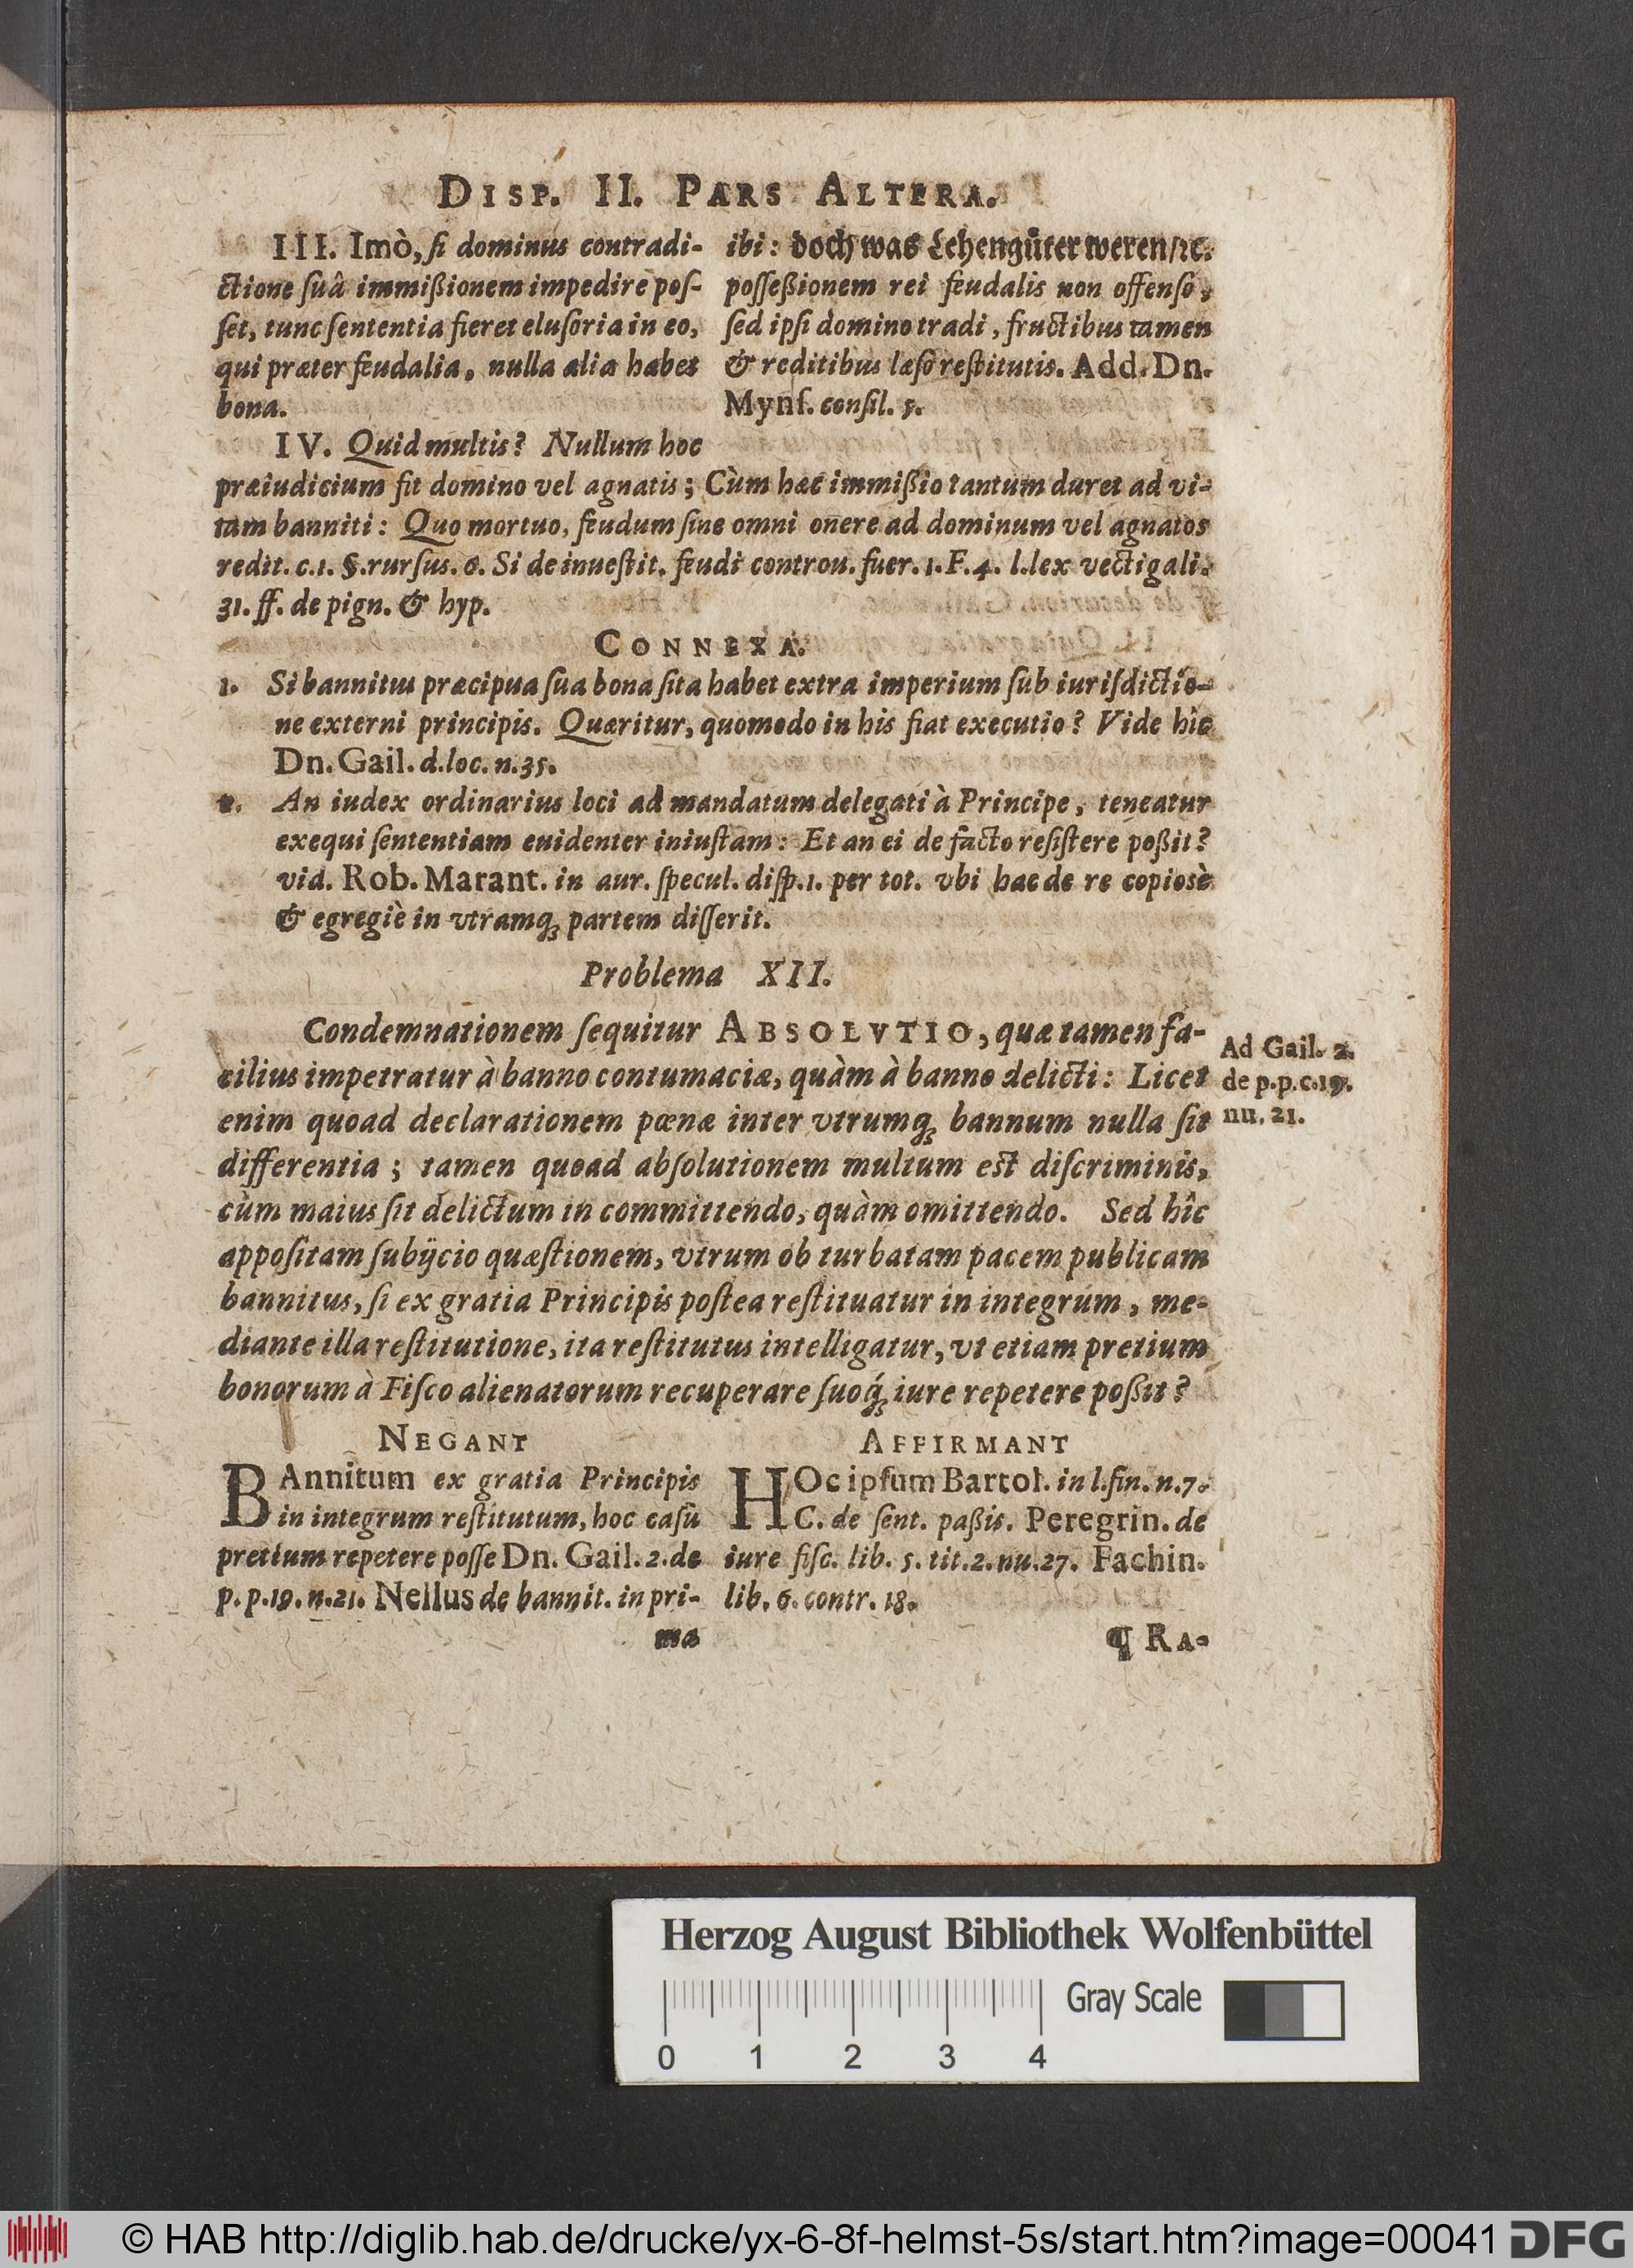 DISP. II. PARS ALTERA.
III. Imò, ſi dominus contradi-
ctione ſuâ immißionem impedire poſ-
ſet, tunc ſententia fieret eluſoria in eo,
qui præter feudalia, nulla alia habet
bona.
IV. Quid multis? Nullum hoc
ibi: doch was Lehengüter weren/ꝛc.
poſſeßionem rei feudalis non offenſo,
ſed ipſi domino tradi, fructibus tamen
& reditibus læſo reſtitutis. Add. Dn.
Mynſ. conſil. 5.
præiudicium fit domino vel agnatis; Cùm hæc immißio tantùm duret ad vi-
tam banniti: Quo mortuo, feudum ſine omni onere ad dominum vel agnatos
redit. c.1. §.rurſus. 6. Si de inueſtit. feudi controu. fuer. 1. F. 4. l.lex vectigali.
31. ff. de pign. & hyp.
CONNEXA.
1. Si bannitus præcipua ſua bona ſita habet extra imperium ſub iuriſdictio-
ne externi principis. Quæritur, quomodo in his fiat executio? Vide hîc
Dn. Gail. d.loc. n.35.
2. An iudex ordinarius loci ad mandatum delegati à Principe, teneatur
exequi ſententiam euidenter iniuſtam: Et an ei de facto reſiſtere poßit?
vid. Rob. Marant. in aur. ſpecul. diſp.1. per tot. vbi hac de re copiosè
& egregiè in vtramq; partem diſſerit.
Problema XII.
Condemnationem ſequitur ABSOLVTIO, quæ tamen fa-
cilius impetratur à banno contumaciæ, quàm à banno delicti: Licet
enim quoad declarationem pœnæ inter vtrumq; bannum nulla ſit
differentia; tamen quoad abſolutionem multum eſt diſcriminis,
cùm maius ſit delictum in committendo, quàm omittendo. Sed hîc
appoſitam ſubijcio quæſtionem, vtrum ob turbatam pacem publicam
bannitus, ſi ex gratia Principis poſtea reſtituatur in integrum, me-
diante illa reſtitutione, ita reſtitutus intelligatur, vt etiam pretium
bonorum à Fiſco alienatorum recuperare ſuoq́; iure repetere poßit?
Ad Gail. 2.
de p.p.c.19.
nu. 21.
NEGANT
BAnnitum ex gratia Principis
in integrum reſtitutum, hoc caſu
pretium repetere poſſe Dn. Gail. 2. de
p. p.19. n.21. Nellus de bannit. in pri-
ma
AFFIRMANT
HOc ipſum Bartol. in l.fin. n.7.
C. de ſent. paßis. Peregrin. de
iure fiſc. lib. 5. tit.2. nu.27. Fachin.
lib. 6. contr. 18.
¶ RA-
Herzog August Bibliothek Wolfenbüttel
Gray Scale
0 1 2 3 4
© HAB http://diglib.hab.de/drucke/yx-6-8f-helmst-5s/start.htm?image=00041 DFG